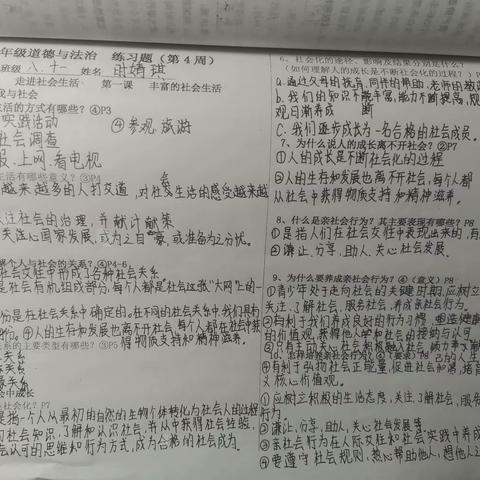 年级道德与法治 练习题（第4周）
班级 八.十一 姓名
走进社会生活 第一课 丰富的社会生活
我与社会
生活的方式有哪些？④P3
实践活动 ④参观.旅游
社会调查
报.上网.看电视
生活有哪些意义？③P4
越来越多的人打交道，对社会生活的感受越来越
关注社会的治理，并献计献策
关注心国家发展，或为之自豪，或准备为之分忧。
个人与社会的关系？④P4-6
社会交往中形成了各种社会关系
是社会有机组成部分，每个人都是社会这张"大网"上的一
份是在社会关系中确定的。在不同的社会关系中，我们具有
④人的生存和发展也离不开社会，每个人都从社会中获
得物质支持和精神滋养。
关系的主要类型有哪些？③P5
关系
关系
关系
会中成长
社会化？P7
是指一个人从最初的自然的生物个体转化为社会人的过程
社会知识，了解和认识社会，并从中获得社会经验，
会认可的思维和行为方式，成为合格的社会成员。
6、社会化的途径、影响及结果分别是什么？
（如何理解人的成长是不断社会化的过程？）P
a.通过父母的抚育，同伴的帮助，老师的教
b.我们的知识不断丰富，能力不断提高，规
观日渐养成
c.我们逐步成长为一名合格的社会成员。
7、为什么说人的成长离不开社会？②P7
①人的成长是不断社会化的过程
②人的生存和发展也离不开社会，每个人都
从社会中获得物质支持和精神滋养。
8、什么是亲社会行为？其主要表现有哪些？P8
①是指人们在社会交往中表现出来的，有
②谦让、分享、助人、关心社会发展。
9、为什么要养成亲社会行为？④（意义）P8
①青少年处于走向社会的关键时期，应树立
关注、了解社会、服务社会，养成亲社会行为。
②有利于我们养成良好的行为习惯，塑造健康
的价值观，获得他人和社会的接纳与认可
③只有主动关心社会，积极融入社会
10、怎样培养亲社会行为？④（要求）P8
④有利于弘扬社会正能量，促进社会和谐，培育
义核心价值观。
①应树立积极的生活态度，关注、了解社会、服务
行为。
②谦让，分享，助人，关心社会发展等。
③亲社会行为在人际交往和社会实践中养成
④要遵守社会规则，热心帮助他人，想他人